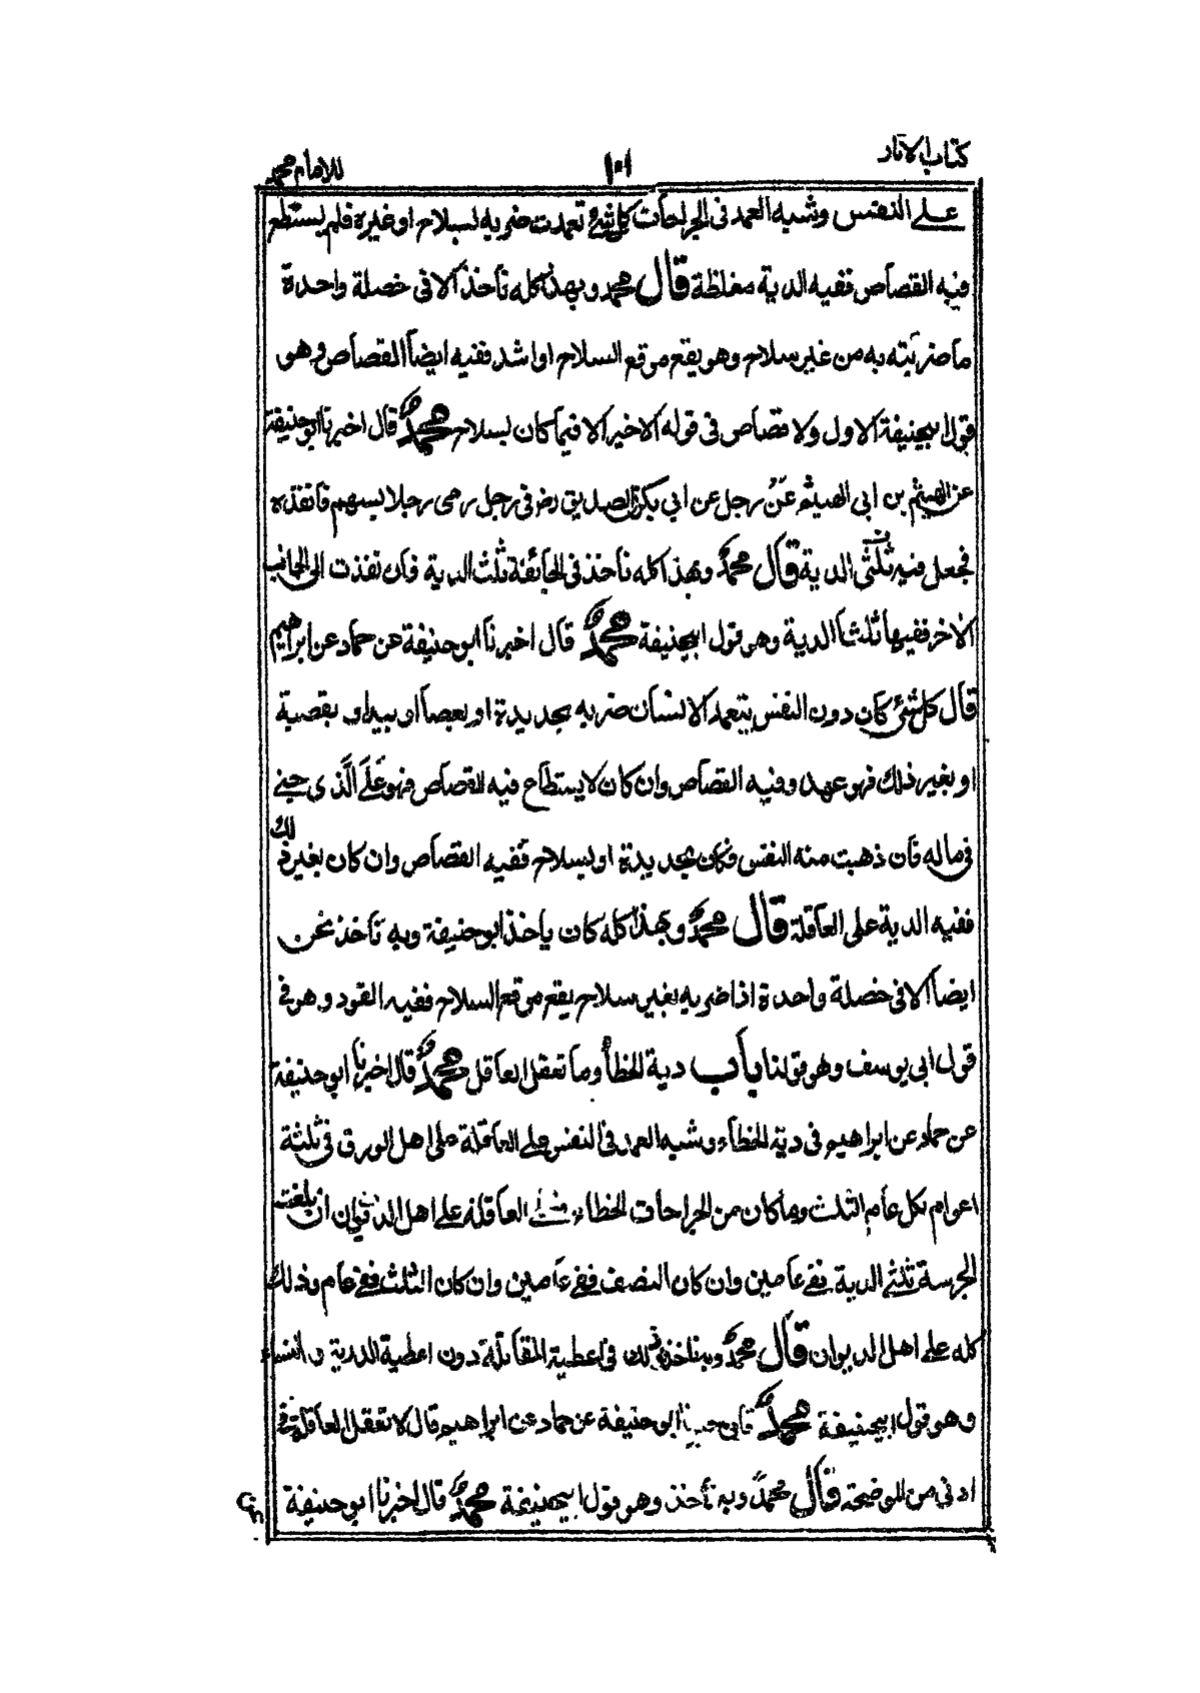 كتاب الاثار
١٠١
للامام محمد
على النفس وشبه العمد فى الجراحات كل شئ تعمدت ضربه بسلاح او غيره فلم يستطع
فيه القصاص ففيه الدية مغلظة قال محمد وبهذا كله نأخذ الا فى خصلة واحدة
ما ضربته به من غير سلاح وهو يقع موقع السلاح او اشد ففيه ايضا القصاص وهو
قول ابيحنيفة الاول ولا قصاص فى قوله الاخير الا فيما كان بسلاح محمد قال اخبرنا ابوحنيفة
عن الهيثم بن ابى الهيثم عن رجل عن ابي بكر الصديق رض فى رجل رمى رجلا بسهم فانفذه
فجعل فيه ثلثى الدية قال محمد وبهذا كله نأخذ فى الجائفة ثلث الدية فان نفذت الى الجانب
الاخر ففيها ثلثا الدية وهو قول ابيحنيفة محمد قال اخبرنا ابو حنيفة عن حماد عن ابراهيم
قال كل شئ كان دون النفس يتعمد الانسان ضربه بحديدة او بعصا او بيد او بقصبة
او بغير ذلك فهو عمد وفيه القصاص وان كان لا يستطاع فيه القصاص فهو على الذى جنى
فى ماله فان ذهبت منه النفس فكان بحديدة او بسلاح ففيه القصاص وان كان بغير ذلك
ففيه الدية على العاقلة قال محمد وبهذا كله كان يأخذ ابو حنيفة وبه نأخذ نحن
ايضا الا فى خصلة واحدة اذا ضربه بغير سلاح يقع موقع السلاح ففيه القود وهو فى
قول ابى يوسف وهو قولنا باب دية الخطأ وما تعقل العاقل محمد قال اخبرنا ابو حنيفة
عن حماد عن ابراهيم فى دية الخطأء وشبه العمد فى النفس على العاقلة على اهل الورق فى ثلثة
اعوام لكل عام الثلث وما كان من الجراحات الخطاء العاقلة على اهل الديوان ان بلغت
الجرسة ثلثى الدية ففى عامين وان كان النصف ففى عامين وان كان الثلث ففى عام وذلك
كله على اهل الديوان قال محمد وبهذا نأخذ ذلك فى اعطية المقاتلة دون اعطية الذرية والنساء
وهو قول ابيحنيفة محمد قال اخبرنا ابو حنيفة عن حماد عن ابراهيم قال لا تعقل العاقلة فى
ادنى من الموضحة قال محمد وبه نأخذ وهو قول ابيحنيفة محمد قال اخبرنا ابو حنيفة
عن